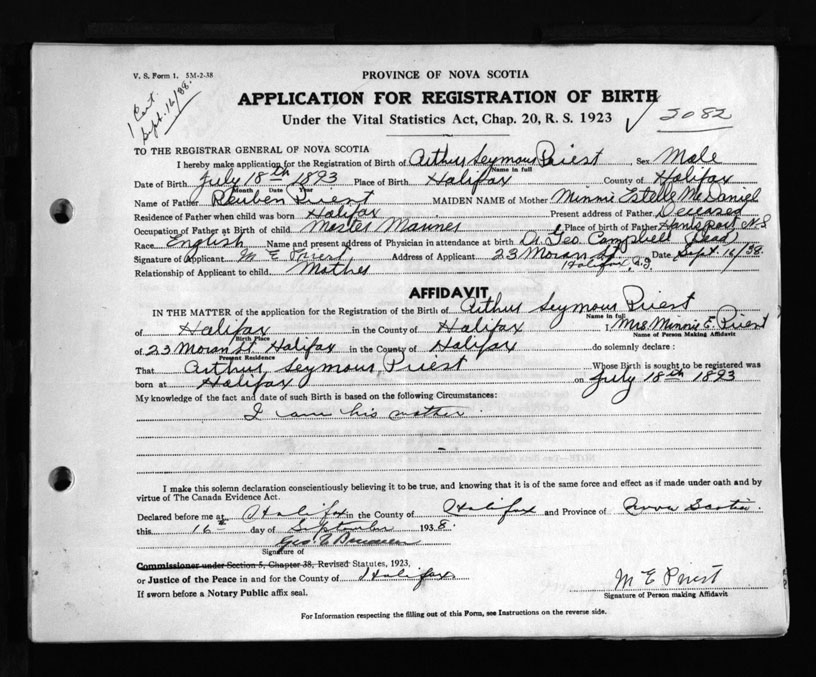 V. S. Form 1. 5M-2-38
PROVINCE OF NOVA SCOTIA
1 Cert. Sept. 16/38.
APPLICATION FOR REGISTRATION OF BIRTH
2082
Under the Vital Statistics Act, Chap. 20, R. S. 1923
TO THE REGISTRAR GENERAL OF NOVA SCOTIA
I hereby make application for the Registration of Birth of Arthur Seymour Priest Sex Male
Name in full
Date of Birth July 18th 1893 Place of Birth Halifax County of Halifax
Month Date Year
Name of Father Reuben Priest MAIDEN NAME of Mother Minnie Estelle McDaniel
Residence of Father when child was born Halifax Present address of Father Deceased
Occupation of Father at Birth of child Master Mariner Place of birth of Father Hantsport N.S
Race English Name and present address of Physician in attendance at birth Dr. Geo. Campbell (Dead)
Signature of Applicant M E Priest Address of Applicant 23 Moran St Halifax Date Sept. 16/38.
Relationship of Applicant to child. Mother
AFFIDAVIT
IN THE MATTER of the application for the Registration of the Birth of Arthur Seymour Priest
Name in full
of Halifax in the County of Halifax I, Mrs. Minnie E. Priest
Birth Place Name of Person Making Affidavit
of 23 Moran St. Halifax in the County of Halifax do solemnly declare :
Present Residence
That Arthur Seymour Priest Whose Birth is sought to be registered was
born at Halifax on July 18th 1893
My knowledge of the fact and date of such Birth is based on the following Circumstances:
I am his mother.
I make this solemn declaration conscientiously believing it to be true, and knowing that it is of the same force and effect as if made under oath and by
virtue of The Canada Evidence Act.
Declared before me at Halifax in the County of Halifax and Province of Nova Scotia.
this 16th day of September 1938.
Geo
Signature of
Commissioner under Section 5, Chapter 38, Revised Statutes, 1923,
or Justice of the Peace in and for the County of Halifax
M E Priest
If sworn before a Notary Public affix seal.
Signature of Person making Affidavit
For Information respecting the filling out of this Form, see Instructions on the reverse side.